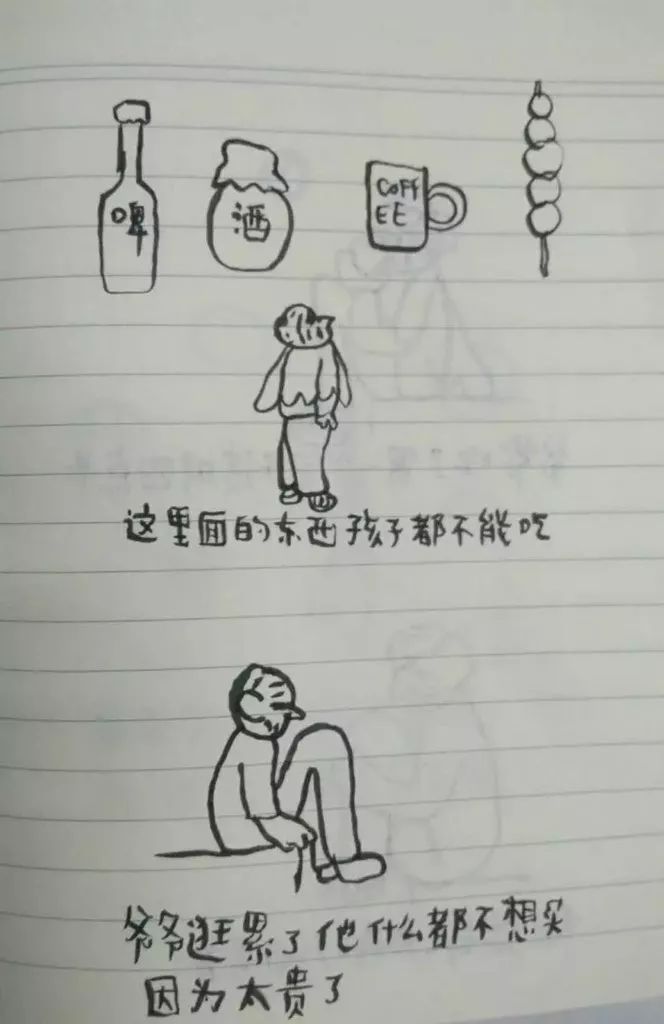 啤
酒
COFF
EE
这里面的东西孩子都不能吃
爷爷逛累了他什么都不想买
因为太贵了